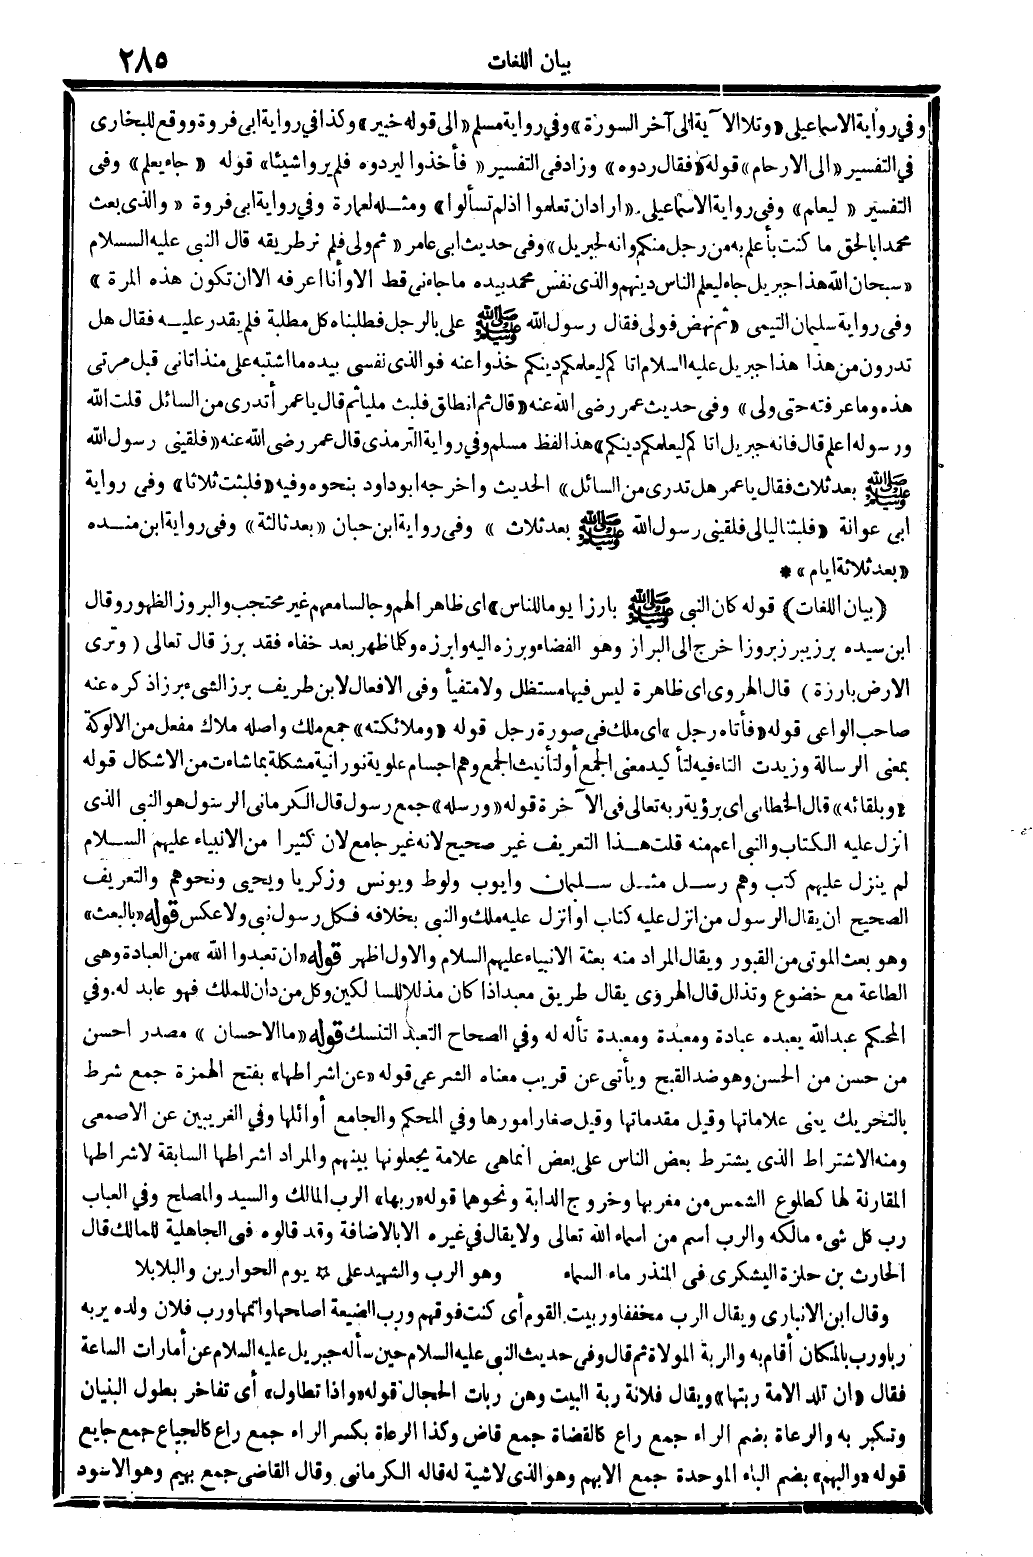 بيان اللغات ٢٨٥
وفي رواية الاسماعيلي «وتلا الآية الى آخر السورة» وفي رواية مسلم «الى قوله خبير» وكذا في رواية ابى فروة ووقع للبخارى
في التفسير «الى الارحام» قوله «فقال ردوه» وزاد فى التفسير «فأخذوا ليردوه فلم يروا شيئا» قوله «جاء يعلم» وفى
التفسير «ليعلم» وفى رواية الاسماعيلى «اراد ان تعلموا اذ لم تسألوا» ومثله لعمارة وفي رواية ابى فروة «والذى بعث
محمدا بالحق ما كنت بأعلم به من رجل منكم وانه لجبريل» وفى حديث ابى عامر «ثم ولى فلم نر طريقه قال النبى عليه السلام
«سبحان الله هذا جبريل جاء ليعلم الناس دينهم والذى نفس محمد بيده ما جاءنى قط الا وأنا اعرفه الا ان تكون هذه المرة»
وفى رواية سليمان التيمى «ثم نهض فولى فقال رسول الله ﷺ على بالرجل فطلبناه كل مطلبة فلم يقدر عليه فقال هل
تدرون من هذا هذا جبريل عليه السلام اتا كم ليعلمكم دينكم خذوا عنه فوالذى نفسى بيده ما اشتبه على منذ اتانى قبل مرتى
هذه وما عرفته حتى ولى» وفى حديث عمر رضى الله عنه «قال ثم انطلق فلبث مليا ثم قال يا عمر أتدرى من السائل قلت الله
ورسوله اعلم قال فانه جبريل اتا كم ليعلمكم دينكم» هذا لفظ مسلم وفي رواية الترمذى قال عمر رضى الله عنه «فلقينى رسول الله
ﷺ بعد ثلاث فقال يا عمر هل تدرى من السائل» الحديث واخرجه ابو داود بنحوه وفيه «فلبثت ثلاثا» وفى رواية
ابى عوانة «فلبثنا ليالى فلقينى رسول الله ﷺ بعد ثلاث» وفى رواية ابن حبان «بعد ثالثة» وفى رواية ابن منده
«بعد ثلاثة ايام» *
(بيان اللغات) قوله كان النبى ﷺ بارزا يوما للناس» اى ظاهرا لهم وجالسا معهم غير محتجب والبروز الظهور وقال
ابن سيده برز يبرز بروزا خرج الى البراز وهو الفضاء وبرزه اليه وابرزه وكلما ظهر بعد خفاء فقد برز قال تعالى (وترى
الارض بارزة) قال الهروى اى ظاهرة ليس فيها مستظل ولا متفيأ وفى الافعال لابن طريف برز الشىء برزا ذكره عنه
صاحب الواعى قوله «فأتاه رجل» اى ملك فى صورة رجل قوله «وملائكته» جمع ملك واصله ملاك مفعل من الالوكة
بمعنى الرسالة وزيدت التاء فيه لتأكيد معنى الجمع أو لتأنيث الجمع وهم اجسام علوية نورانية مشكلة بما شاءت من الاشكال قوله
«وبلقائه» قال الخطابى اى برؤية ربه تعالى فى الآخرة قوله «ورسله» جمع رسول قال الكرمانى الرسول هو النبى الذى
انزل عليه الكتاب والنبى اعم منه قلت هذا التعريف غير صحيح لانه غير جامع لان كثيرا من الانبياء عليهم السلام
لم ينزل عليهم كتب وهم رسل مثل سليمان وايوب ولوط ويونس وزكريا ويحيى ونحوهم والتعريف
الصحيح ان يقال الرسول من انزل عليه كتاب او انزل عليه ملك والنبى بخلافه فكل رسول نبى ولا عكس قوله «بالبعث»
وهو بعث الموتى من القبور ويقال المراد منه بعثة الانبياء عليهم السلام والاول اظهر قوله «ان تعبدوا الله» من العبادة وهى
الطاعة مع خضوع وتذلل قال الهروى يقال طريق معبد اذا كان مذللا للسالكين وكل من دان للملك فهو عابد له. وفي
المحكم عبد الله يعبده عبادة ومعبدة ومعبدة تأله له وفي الصحاح التعبد التنسك قوله «ما الاحسان» مصدر احسن
من حسن من الحسن وهو ضد القبح ويأتى عن قريب معناه الشرعى قوله «عن اشراطها» بفتح الهمزة جمع شرط
بالتحريك يعنى علاماتها وقيل مقدماتها وقيل صغار امورها وفي المحكم والجامع أوائلها وفي الغريبين عن الاصمعى
ومنه الاشتراط الذى يشترط بعض الناس على بعض انما هى علامة يجعلونها بينهم والمراد اشراطها السابقة لا شراطها
المقارنة لها كطلوع الشمس من مغربها وخروج الدابة ونحوها قوله «ربها» الرب المالك والسيد والمصلح وفي العباب
رب كل شىء مالكه والرب اسم من اسماء الله تعالى ولا يقال في غيره الا بالاضافة وقد قالوه فى الجاهلية للمالك قال
الحارث بن حلزة اليشكرى فى المنذر ماء السماء وهو الرب والشهيد على ☆ يوم الحوارين والبلابلا
وقال ابن الانبارى ويقال الرب مخففا وربيت القوم أى كنت فوقهم ورب الضيعة اصلحها واتمها ورب فلان ولده يربه
ربا ورب بالمكان أقام به والربة المولاة ثم قال وفى حديث النبى عليه السلام حين سأله جبريل عليه السلام عن أمارات الساعة
فقال «ان تلد الامة ربتها» ويقال فلانة ربة البيت وهن ربات الحجال قوله «واذا تطاول» أى تفاخر بطول البنيان
وتكبر به والرعاة بضم الراء جمع راع كالقضاة جمع قاض وكذا الرعاء بكسر الراء جمع راع كالجياع جمع جايع
قوله «والبهم» بضم الباء الموحدة جمع الابهم وهو الذى لا شية له قاله الكرمانى وقال القاضى جمع بهيم وهو الاسود